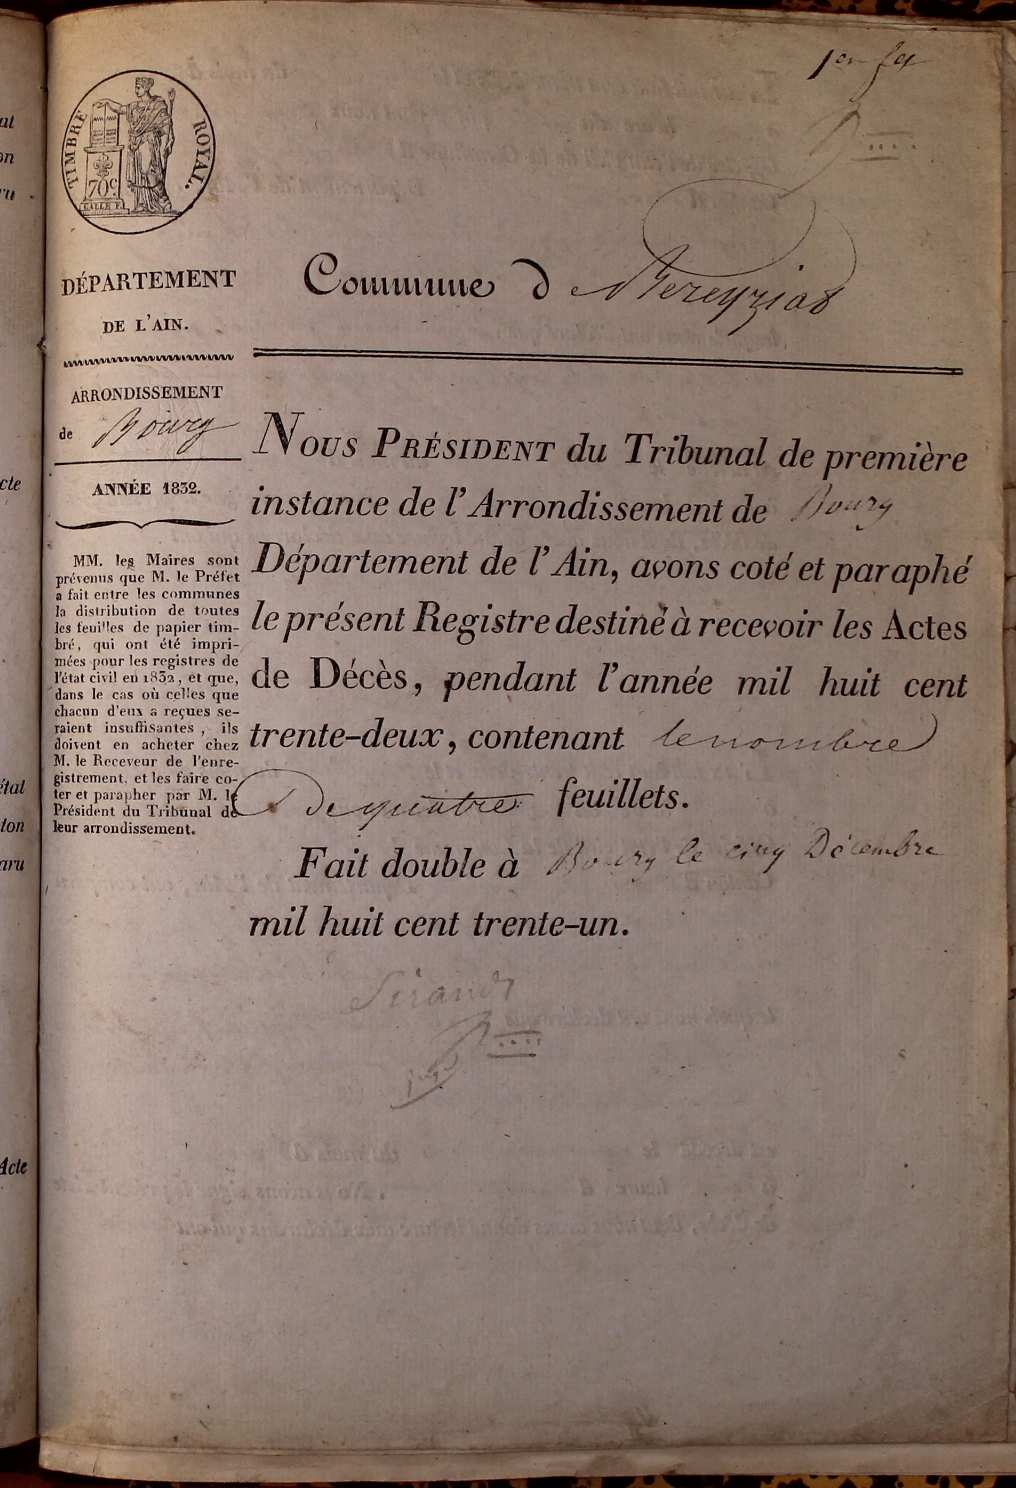 1er fet
TIMBRE ROYAL.
70c.
DÉPARTEMENT
DE L'AIN.
ARRONDISSEMENT
de Bourg
ANNÉE 1832.
MM. les Maires sont
prévenus que M. le Préfet
a fait entre les communes
la distribution de toutes
les feuilles de papier tim-
bré, qui ont été impri-
mées pour les registres de
l'état civil en 1832, et que,
dans le cas où celles que
chacun d'eux a reçues se-
raient insuffisantes, ils
doivent en acheter chez
M. le Receveur de l'enre-
gistrement, et les faire co-
ter et parapher par M. le
Président du Tribunal de
leur arrondissement.
Commune de Bereyziat
NOUS PRÉSIDENT du Tribunal de première
instance de l'Arrondissement de Bourg
Département de l'Ain, avons coté et paraphé
le présent Registre destiné à recevoir les Actes
de Décès, pendant l'année mil huit cent
trente-deux, contenant le nombre
De quatre feuillets.
Fait double à Bourg le cinq Décembre
mil huit cent trente-un.